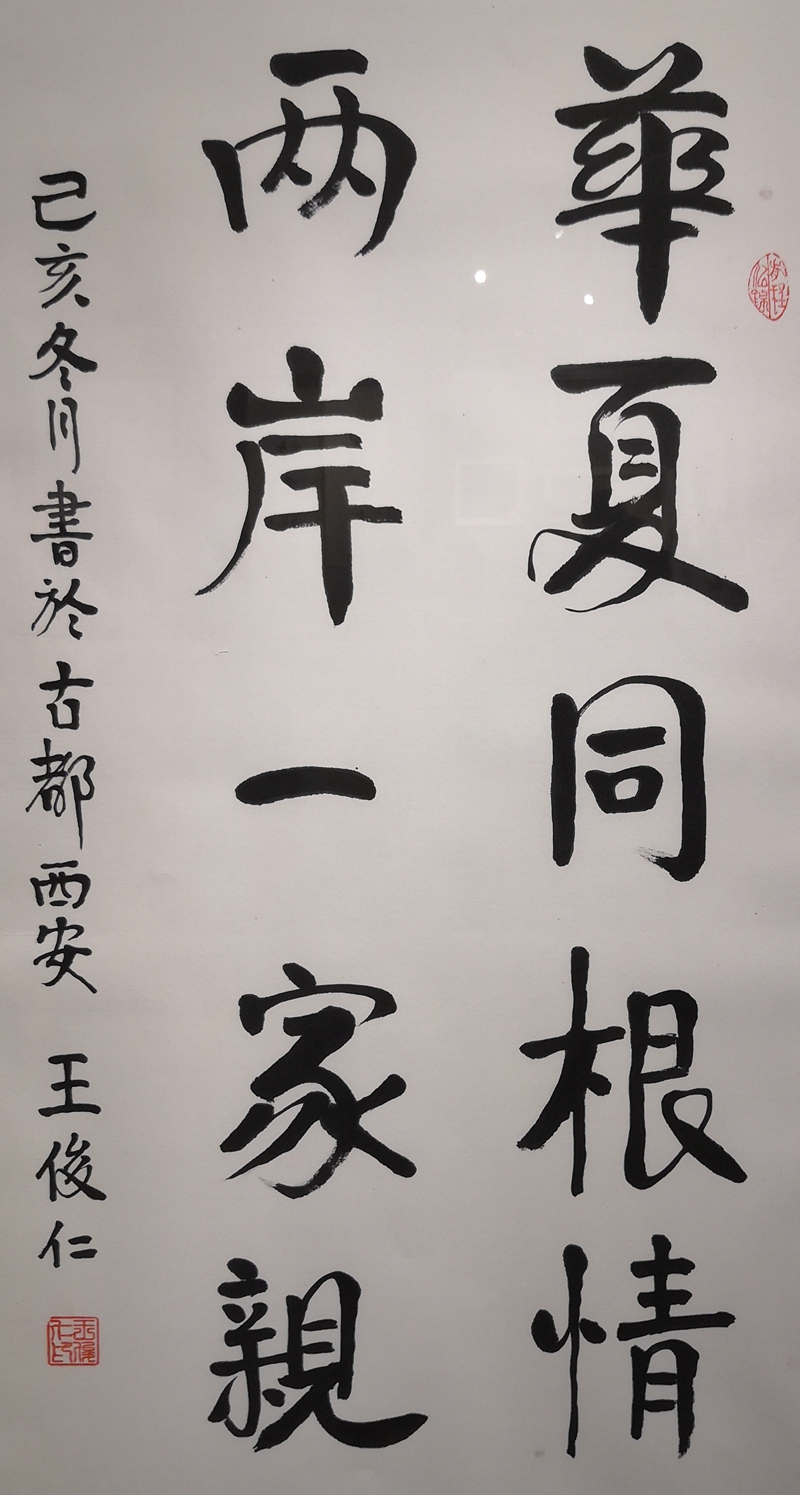 華夏同根情
两岸一家親
己亥冬月書於古都西安 王俊仁